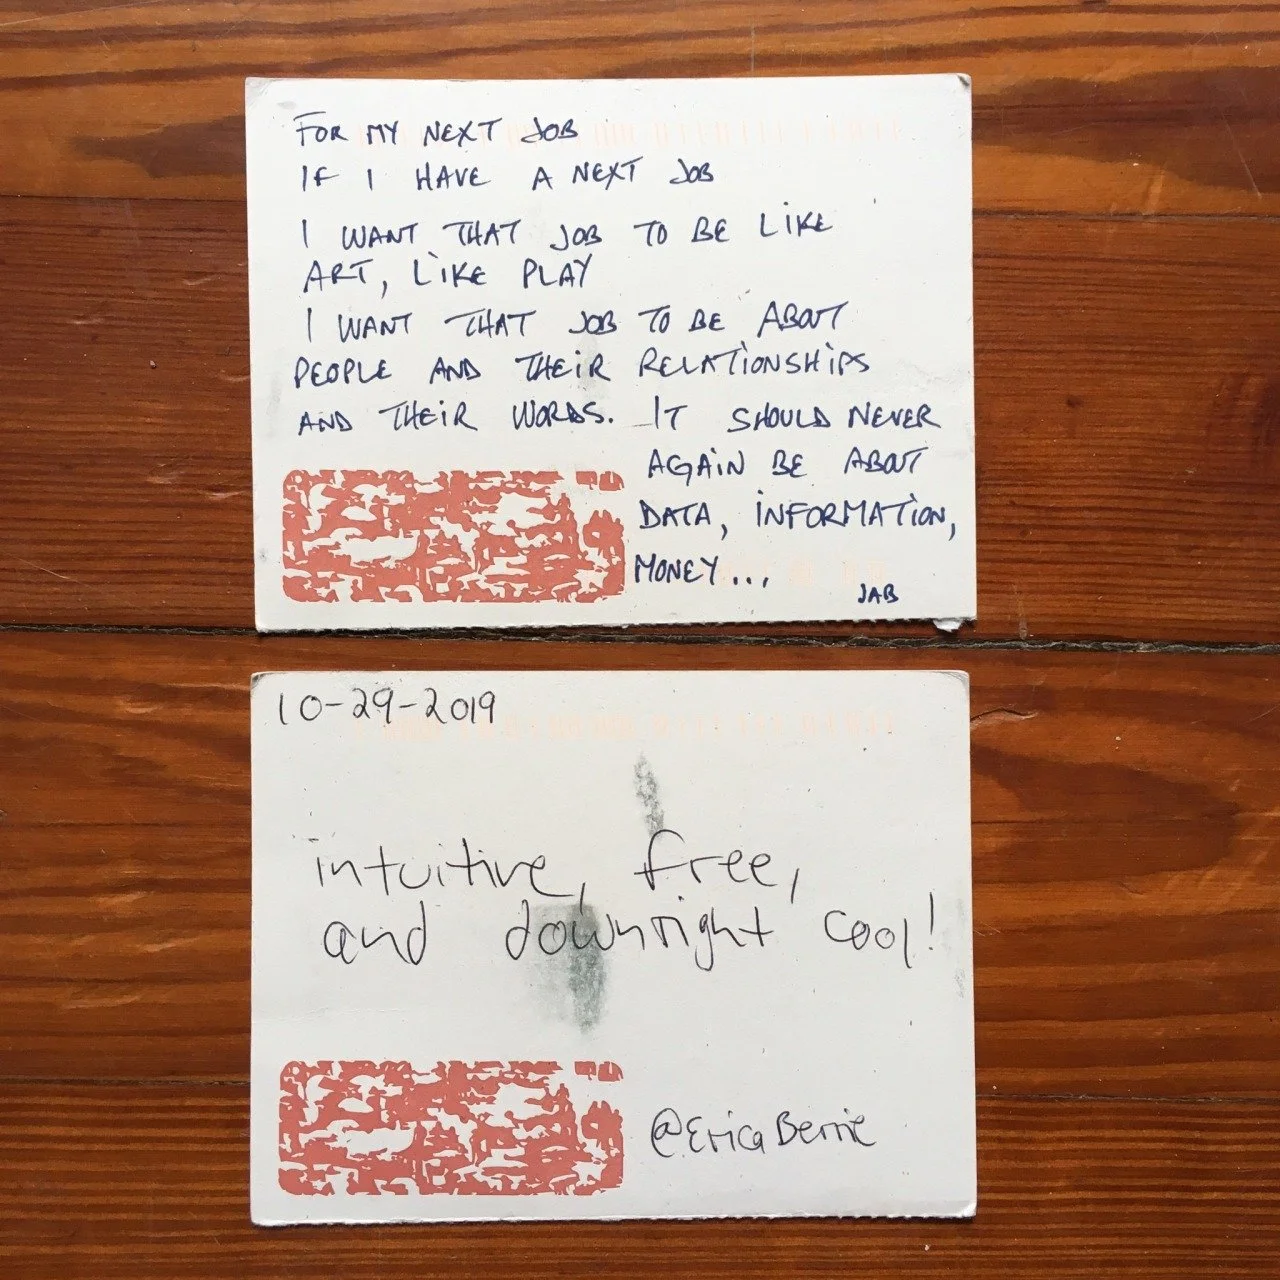 FOR MY NEXT JOB
IF I HAVE A NEXT JOB
I WANT THAT JOB TO BE LIKE
ART, LIKE PLAY
I WANT THAT JOB TO BE ABOUT
PEOPLE AND THEIR RELATIONSHIPS
AND THEIR WORDS. IT SHOULD NEVER
AGAIN BE ABOUT
DATA, INFORMATION,
MONEY...,
JAB
10-29-2019
intuitive, free,
and downright cool!
@EricaBerrie